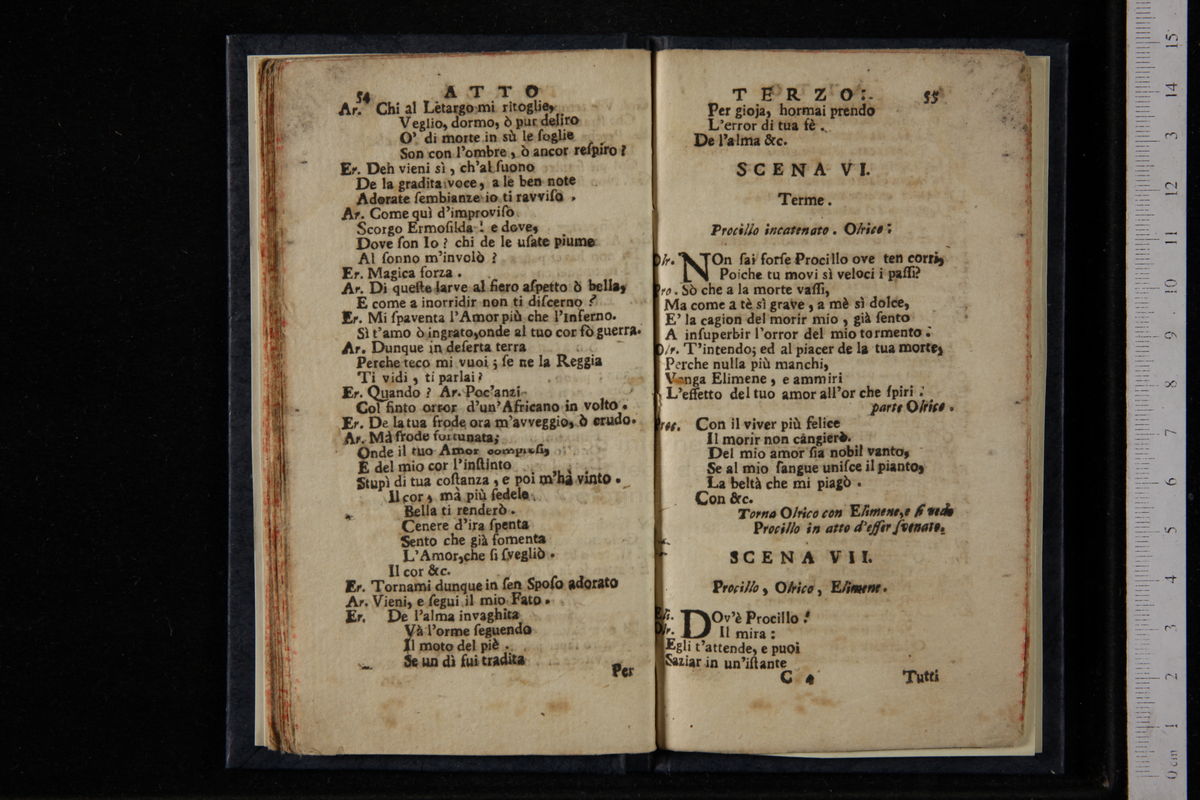 54 ATTO
Ar. Chi al Letargo mi ritoglie,
Veglio, dormo, ò pur deliro
O' di morte in sù le ſoglie
Son con l'ombre, ò ancor reſpiro?
Er. Deh vieni sì, ch'al ſuono
De la gradita voce, a le ben note
Adorate ſembianze io ti ravviſo.
Ar. Come quì d'improviſo
Scorgo Ermoſilda! e dove,
Dove ſon Io? chi de le uſate piume
Al ſonno m'involò?
Er. Magica forza.
Ar. Di queſte larve al fiero aſpetto ò bella,
E come a inorridir non ti diſcerno?
Er. Mi ſpaventa l'Amor più che l'Inferno.
Sì t'amo ò ingrato, onde al tuo cor fò guerra.
Ar. Dunque in deſerta terra
Perche teco mi vuoi; ſe ne la Reggia
Ti vidi, ti parlai?
Er. Quando? Ar. Poc'anzi
Col finto orror d'un'Africano in volto.
Er. De la tua frode ora m'avveggio, ò crudo.
Ar. Mà frode fortunata;
Onde il tuo Amor compreſi,
E del mio cor l'inſtinto
Stupì di tua coſtanza, e poi m'hà vinto.
Il cor, mà più fedele
Bella ti renderò.
Cenere d'ira ſpenta
Sento che già fomenta
L'Amor, che ſi ſvegliò.
Il cor &c.
Er. Tornami dunque in ſen Spoſo adorato
Ar. Vieni, e ſegui il mio Fato.
Er. De l'alma invaghita
Và l'orme ſeguendo
Il moto del piè.
Se un dì fui tradita
Per
TERZO. 55
Per gioja, hormai prendo
L'error di tua fè.
De l'alma &c.
SCENA VI.
Terme.
Procillo incatenato. Olrico.
Olr. NOn ſai forſe Procillo ove ten corri,
Poiche tu movi sì veloci i paſſi?
Pro. Sò che a la morte vaſſi,
Ma come a tè sì grave, a mè sì dolce,
E' la cagion del morir mio, già ſento
A inſuperbir l'orror del mio tormento.
Olr. T'intendo; ed al piacer de la tua morte,
Perche nulla più manchi,
Venga Elimene, e ammiri
L'effetto del tuo amor all'or che ſpiri.
parte Olrico.
Proc. Con il viver più felice
Il morir non cangierò.
Del mio amor ſia nobil vanto,
Se al mio ſangue uniſce il pianto,
La beltà che mi piagò.
Con &c.
Torna Olrico con Elimene, e ſi vede
Procillo in atto d'eſſer ſvenato.
SCENA VII.
Procillo, Olrico, Elimene.
Eli. DOv'è Procillo?
Olr. Il mira:
Egli t'attende, e puoi
Saziar in un'iſtante
C 4 Tutti
0 cm 1 2 3 4 5 6 7 8 9 10 11 12 13 14 15